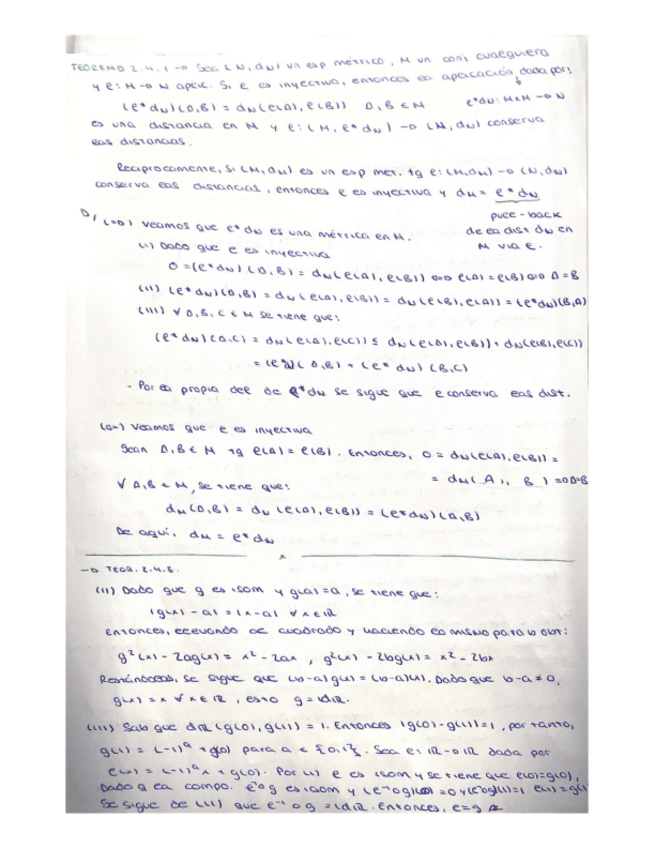 TEOREMA 2.4.1 → Sea (N, dN) un esp métrico, M un conj cualquiera
y e: M → N aplic. Si e es inyectiva, entonces la aplicación, dada por:
(e*dN)(A,B) = dN(e(A), e(B)) A,B ∈ M e*dN: M×M → N
es una distancia en M y e: (M, e*dN) → (N, dN) conserva
las distancias.
Recíprocamente, si (M, dM) es un esp met. tq e: (M, dM) → (N, dN)
conserva las distancias, entonces e es inyectiva y dM = e*dN
pull-back
de la dist dN en
M via e.
D/ (⇒) Veamos que e*dN es una métrica en M.
(i) Dado que e es inyectiva
0 = (e*dN)(A,B) = dN(e(A), e(B)) ⇔ e(A) = e(B) ⇔ A = B
(ii) (e*dN)(A,B) = dN(e(A), e(B)) = dN(e(B), e(A)) = (e*dN)(B,A)
(iii) ∀ A,B,C ∈ M se tiene que:
(e*dN)(A,C) = dN(e(A), e(C)) ≤ dN(e(A), e(B)) + dN(e(B), e(C))
= (e*d)(A,B) + (e*dN)(B,C)
- Por la propia def de e*dN se sigue que e conserva las dist.
(⇐) Veamos que e es inyectiva
Sean A,B ∈ M tq e(A) = e(B). Entonces, 0 = dN(e(A), e(B)) =
= dM(A, B) ⇒ A=B
∀ A,B ∈ M, se tiene que:
dM(A,B) = dN(e(A), e(B)) = (e*dN)(A,B)
De aquí, dM = e*dN
→ TEOR. 2.4.3.
(ii) Dado que g es isom y g(a) = a, se tiene que:
|g(x) - a| = |x - a| ∀ x ∈ ℝ
Entonces, elevando al cuadrado y haciendo lo mismo para b obt:
g²(x) - 2ag(x) = x² - 2ax, g²(x) - 2bg(x) = x² - 2bx
Restándolas, se sigue que (b-a)g(x) = (b-a)(x). Dado que b-a ≠ 0,
g(x) = x ∀ x ∈ ℝ, esto g = idℝ.
(iii) Sab que dℝ(g(0), g(1)) = 1. Entonces |g(0) - g(1)| = 1, por tanto,
g(1) = (-1)ᵃ + g(0) para a ∈ {0,1}. Sea e: ℝ → ℝ dada por
e(x) = (-1)ᵃx + g(0). Por (i) e es isom y se tiene que e(0) = g(0),
Dado q la compo. e⁻¹∘g es isom y (e⁻¹∘g)(0) = 0 y (e⁻¹∘g)(1) = 1 e(1) = g(1)
Se sigue de (ii) que e⁻¹ ∘ g = idℝ. Entonces, e = g